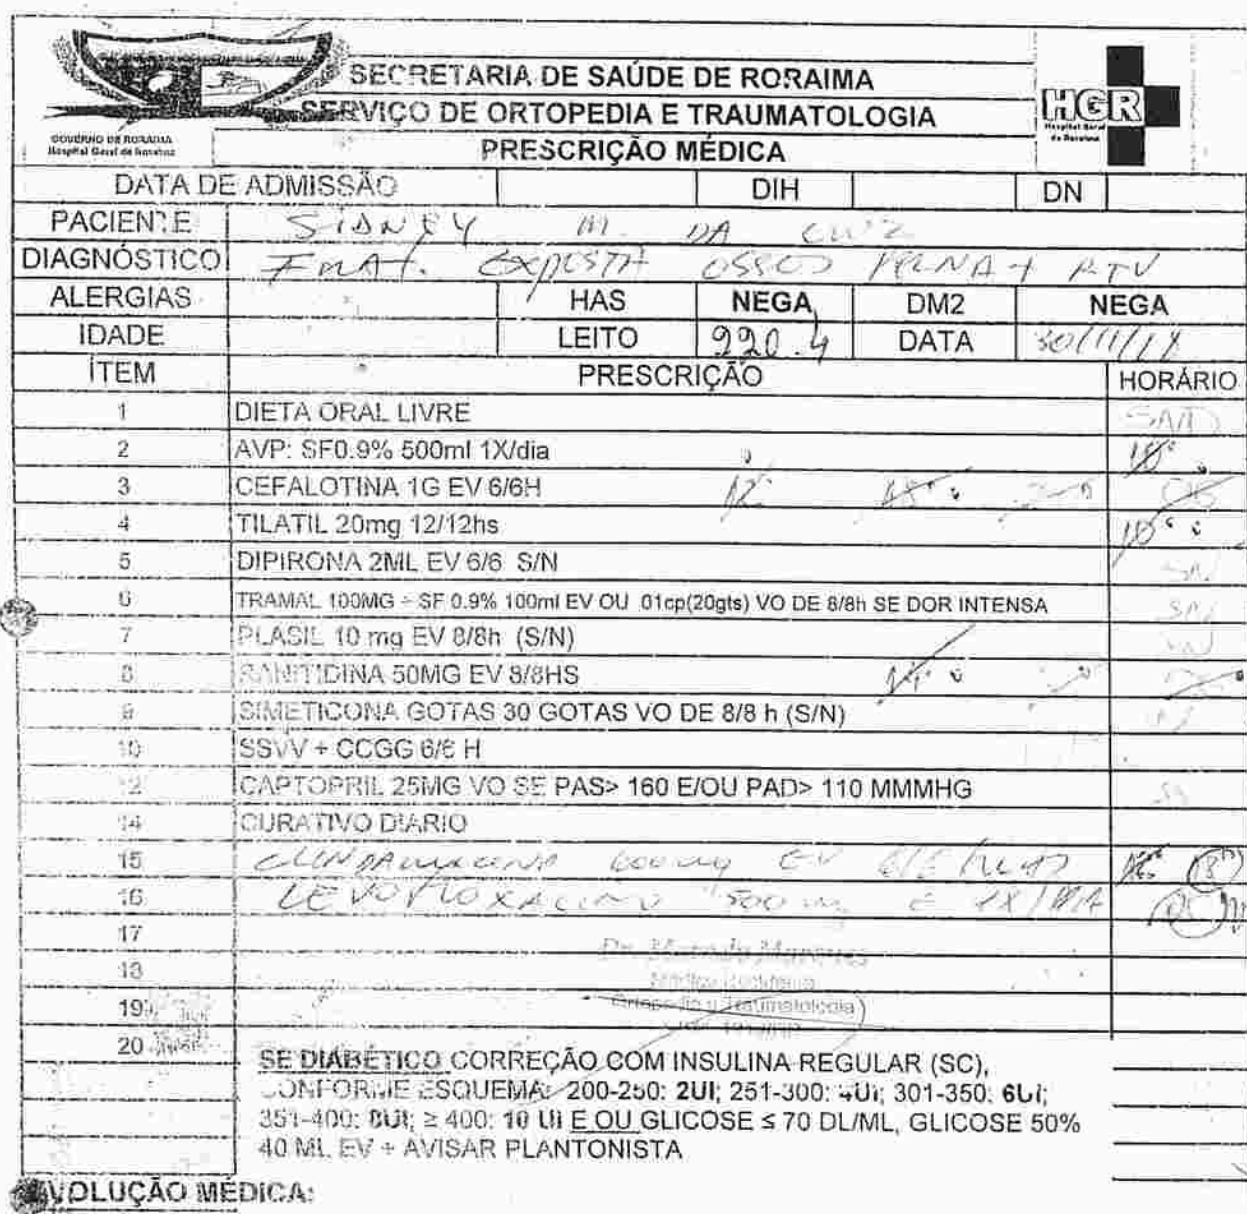 SECRETARIA DE SAÚDE DE RORAIMA
SERVIÇO DE ORTOPEDIA E TRAUMATOLOGIA
PRESCRIÇÃO MÉDICA
GOVERNO DE RORAIMA
Hospital Geral de Roraima
HGR
Hospital Geral de Roraima
DATA DE ADMISSÃO DIH DN
PACIENTE SIDNEY M. DA CRUZ
DIAGNÓSTICO FRAT. EXPOSTA OSSOS PERNA +
ALERGIAS HAS NEGA DM2 NEGA
IDADE LEITO 220.4 DATA 30/11/18
ÍTEM PRESCRIÇÃO HORÁRIO
1 DIETA ORAL LIVRE SND
2 AVP: SF0.9% 500ml 1X/dia
3 CEFALOTINA 1G EV 6/6H 12 18 06
4 TILATIL 20mg 12/12hs
5 DIPIRONA 2ML EV 6/6 S/N SN
6 TRAMAL 100MG + SF 0.9% 100ml EV OU 01cp(20gts) VO DE 8/8h SE DOR INTENSA SN
7 PLASIL 10 mg EV 8/8h (S/N) SN
8 RANITIDINA 50MG EV 8/8HS 14
9 SIMETICONA GOTAS 30 GOTAS VO DE 8/8 h (S/N)
10 SSVV + CCGG 6/6 H
12 CAPTOPRIL 25MG VO SE PAS> 160 E/OU PAD> 110 MMMHG SN
14 CURATIVO DIÁRIO
15 CLINDAMICINA 600mg EV 6/6 18
16 LEVOFLOXACINO 500 mg 1X/DIA
17
18
19
20
Ortopedia e Traumatologia
SE DIABÉTICO CORREÇÃO COM INSULINA REGULAR (SC),
CONFORME ESQUEMA: 200-250: 2UI; 251-300: 4UI; 301-350: 6UI;
351-400: 8UI; ≥ 400: 10 UI E OU GLICOSE ≤ 70 DL/ML, GLICOSE 50%
40 ML EV + AVISAR PLANTONISTA
EVOLUÇÃO MÉDICA: